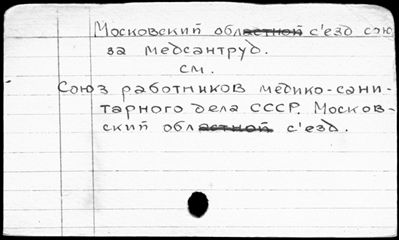 Московский областной с'езд сою
за медсантруд.
см.
Союз работников медико-сани-
тарного дела СССР. Москов-
ский областной с'езд.